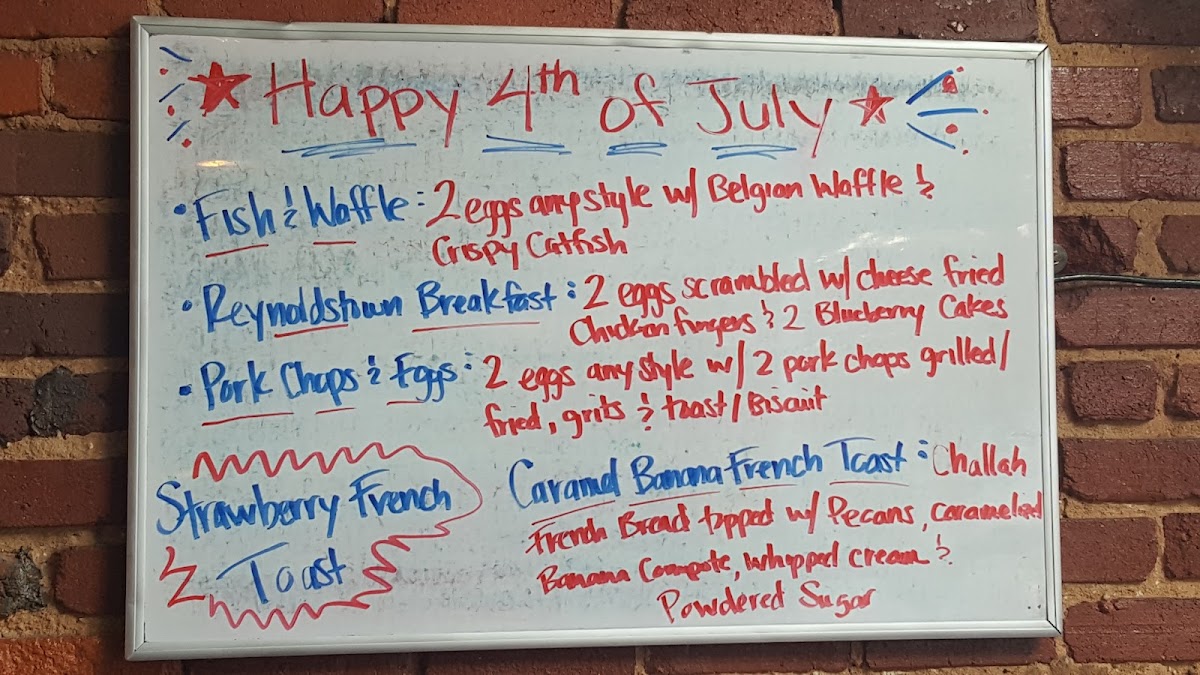 Happy 4th of July
• Fish & Waffle: 2 eggs any style w/ Belgian Waffle &
Crispy Catfish
• Reynoldstown Breakfast: 2 eggs scrambled w/ cheese fried
Chicken fingers & 2 Blueberry Cakes
• Pork Chops & Eggs: 2 eggs any style w/ 2 pork chops grilled/
fried, grits & toast/Biscuit
Strawberry French
Toast
Caramel Banana French Toast: Challah
French Bread topped w/ Pecans, caramelized
Banana Compote, whipped cream &
Powdered Sugar